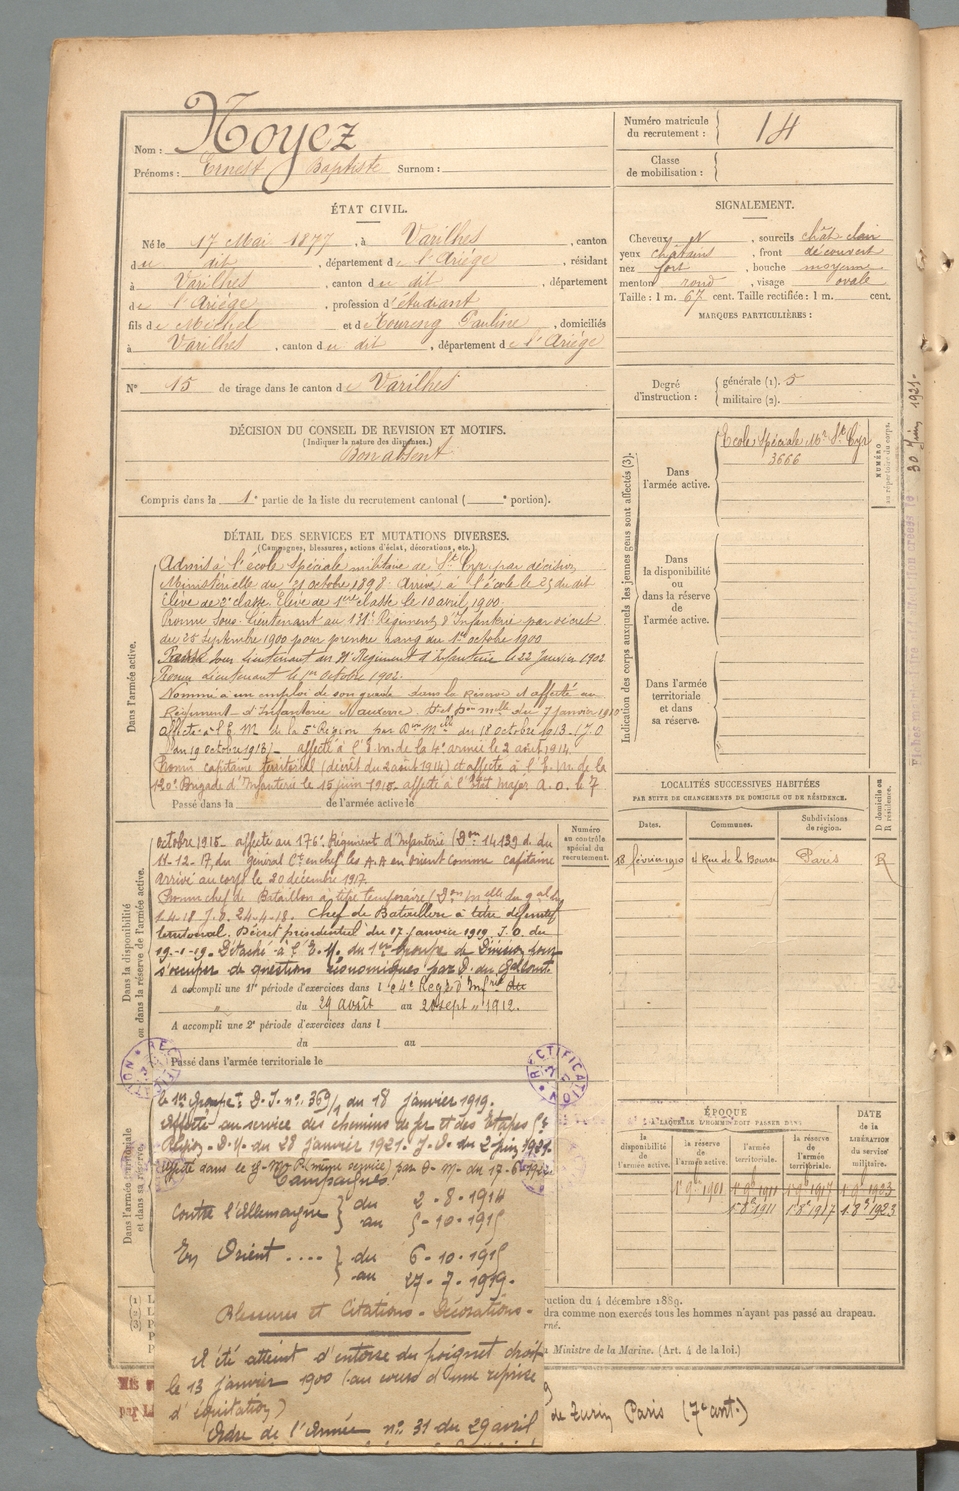 Nom : Noyez
Prénoms : Ernest Baptiste Surnom :
Numéro matricule du recrutement : 14
Classe de mobilisation :
ÉTAT CIVIL.
Né le 17 Mai 1877, à Varilhes, canton
du dit, département de l'Ariège, résidant
à Varilhes, canton du dit, département
de l'Ariège, profession d'étudiant
fils de Michel et de Pauline, domiciliés
à Varilhes, canton du dit, département de l'Ariège
N° 15 de tirage dans le canton de Varilhes
SIGNALEMENT.
Cheveux, sourcils chât clair
yeux châtains, front découvert
nez fort, bouche moyenne
menton rond, visage ovale
Taille : 1 m. 67 cent. Taille rectifiée : 1 m. cent.
MARQUES PARTICULIÈRES :
Degré d'instruction : générale (1). 5
militaire (2).
DÉCISION DU CONSEIL DE REVISION ET MOTIFS.
(Indiquer la nature des dispenses.)
Bon absent
Compris dans la 1e partie de la liste du recrutement cantonal ( e portion).
Indication des corps auxquels les jeunes gens sont affectés (3).
Dans l'armée active.
Ecole Spéciale Mre St Cyr
3666
NUMÉRO au répertoire du corps.
Dans la disponibilité ou dans la réserve de l'armée active.
Dans l'armée territoriale et dans sa réserve.
DÉTAIL DES SERVICES ET MUTATIONS DIVERSES.
(Campagnes, blessures, actions d'éclat, décorations, etc.)
Dans l'armée active.
Admis à l'école Spéciale militaire de St Cyr par décision
Ministérielle du 21 octobre 1898. Arrivé à l'école le 25 du dit
Elève de 2e classe. Elève de 1ere classe le 10 avril 1900.
Promu Sous-Lieutenant au 131e Régiment d'Infanterie par décret
du 25 Septembre 1900 pour prendre rang du 1er octobre 1900
Sous Lieutenant au Régiment d'Infanterie le 22 Janvier 1902
Promu Lieutenant le 1er Octobre 1902.
Nommé à un emploi de son grade dans la Réserve et affecté au
Régiment d'Infanterie d'Auxerre. mlle du 7 janvier 1910
affecté à l'E. M. de la 5e Région par Don Mlle du 18 octobre 1913 - (J.O
du 19 octobre 1913) - affecté à l'E.M. de la 4e armée le 2 août 1914.
Promu capitaine territorial (décret du 2 août 1914) et affecté à l'E.M. de la
120e Brigade d'Infanterie le 15 juin 1915. affecté à l'Etat major A.O. le 7
Passé dans la de l'armée active le
Dans la disponibilité ou dans la réserve de l'armée active.
octobre 1915. affecté au 176e Régiment d'Infanterie (Don 14139 d. du
11-12-17, du général Ct en chef les A.A en orient comme capitaine
arrivé au corps le 20 décembre 1917.
Promu chef de Bataillon à titre temporaire
J.O. 24-4-18. Chef de Bataillon à titre définitif
territorial. Décret présidentiel du 07 janvier 1919. J.O. du
19-1-19. Détaché à l'E.M. du 1er Groupe de Division pour
s'occuper de questions économiques par
A accompli une 1re période d'exercices dans le 4e Regt d'Infrie
du 29 août au 20 sept 1912.
A accompli une 2e période d'exercices dans l
du au
Passé dans l'armée territoriale le
Numéro au contrôle spécial du recrutement.
RECTIFICATION
RECTIFICATION
LOCALITÉS SUCCESSIVES HABITÉES
PAR SUITE DE CHANGEMENTS DE DOMICILE OU DE RÉSIDENCE.
Dates. Communes. Subdivisions de région. D domicile ou R résidence.
18 février 1910 4 Rue de la Bourse Paris R
Dans l'armée territoriale et dans sa réserve.
le 1er Groupe D.I. n° 369/1 du 18 janvier 1919.
Affecté au service des chemins de fer et des Etapes
Région - D.M. du 28 janvier 1921. J.O. du 2 juin 1921.
par D. M. du 17-6-1922
Campagnes
Contre l'Allemagne du 2-8-1914
au 5-10-1915
En Orient .... du 6-10-1915
au 27-7-1919.
Blessures et Citations - Décorations -
A été atteint d'entorse du poignet droit
le 13 janvier 1900 (au cours d'une reprise
d'équitation)
Ordre de l'Armée n° 31 du 29 avril
ÉPOQUE
À LAQUELLE L'HOMME DOIT PASSER DANS
la disponibilité de l'armée active. la réserve de l'armée active. l'armée territoriale. la réserve de l'armée territoriale.
DATE de la LIBÉRATION du service militaire.
1er 9bre 1901 1er 9bre 1911 1er 9bre 1917 1er 9bre 1923
1er 8bre 1911 1er 8bre 1917 1er 8bre 1923
ruction du 4 décembre 1889.
dra comme non exercés tous les hommes n'ayant pas passé au drapeau.
rné.
Ministre de la Marine. (Art. 4 de la loi.)
de Turin Paris (7e ant.)
30 Juin 1921.